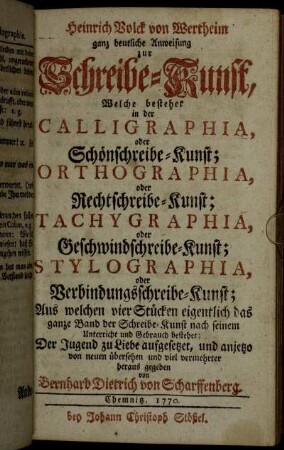 Heinrich Volck von Wertheim
ganz deutliche Anweisung
zur
Schreibe-Kunst,
Welche bestehet
in der
CALLIGRAPHIA,
oder
Schönschreibe-Kunst;
ORTHOGRAPHIA,
oder
Rechtschreibe-Kunst;
TACHYGRAPHIA,
oder
Geschwindschreibe-Kunst;
STYLOGRAPHIA,
oder
Verbindungsschreibe-Kunst;
Aus welchen vier Stücken eigentlich das
ganze Band der Schreibe-Kunst nach seinem
Unterricht und Gebrauch bestehet:
Der Jugend zu Liebe aufgesetzet, und anjetzo
von neuen übersehen und viel vermehrter
heraus gegeben
von
Bernhard Dietrich von Scharffenberg.
Chemnitz, 1770.
bey Johann Christoph Stößel.